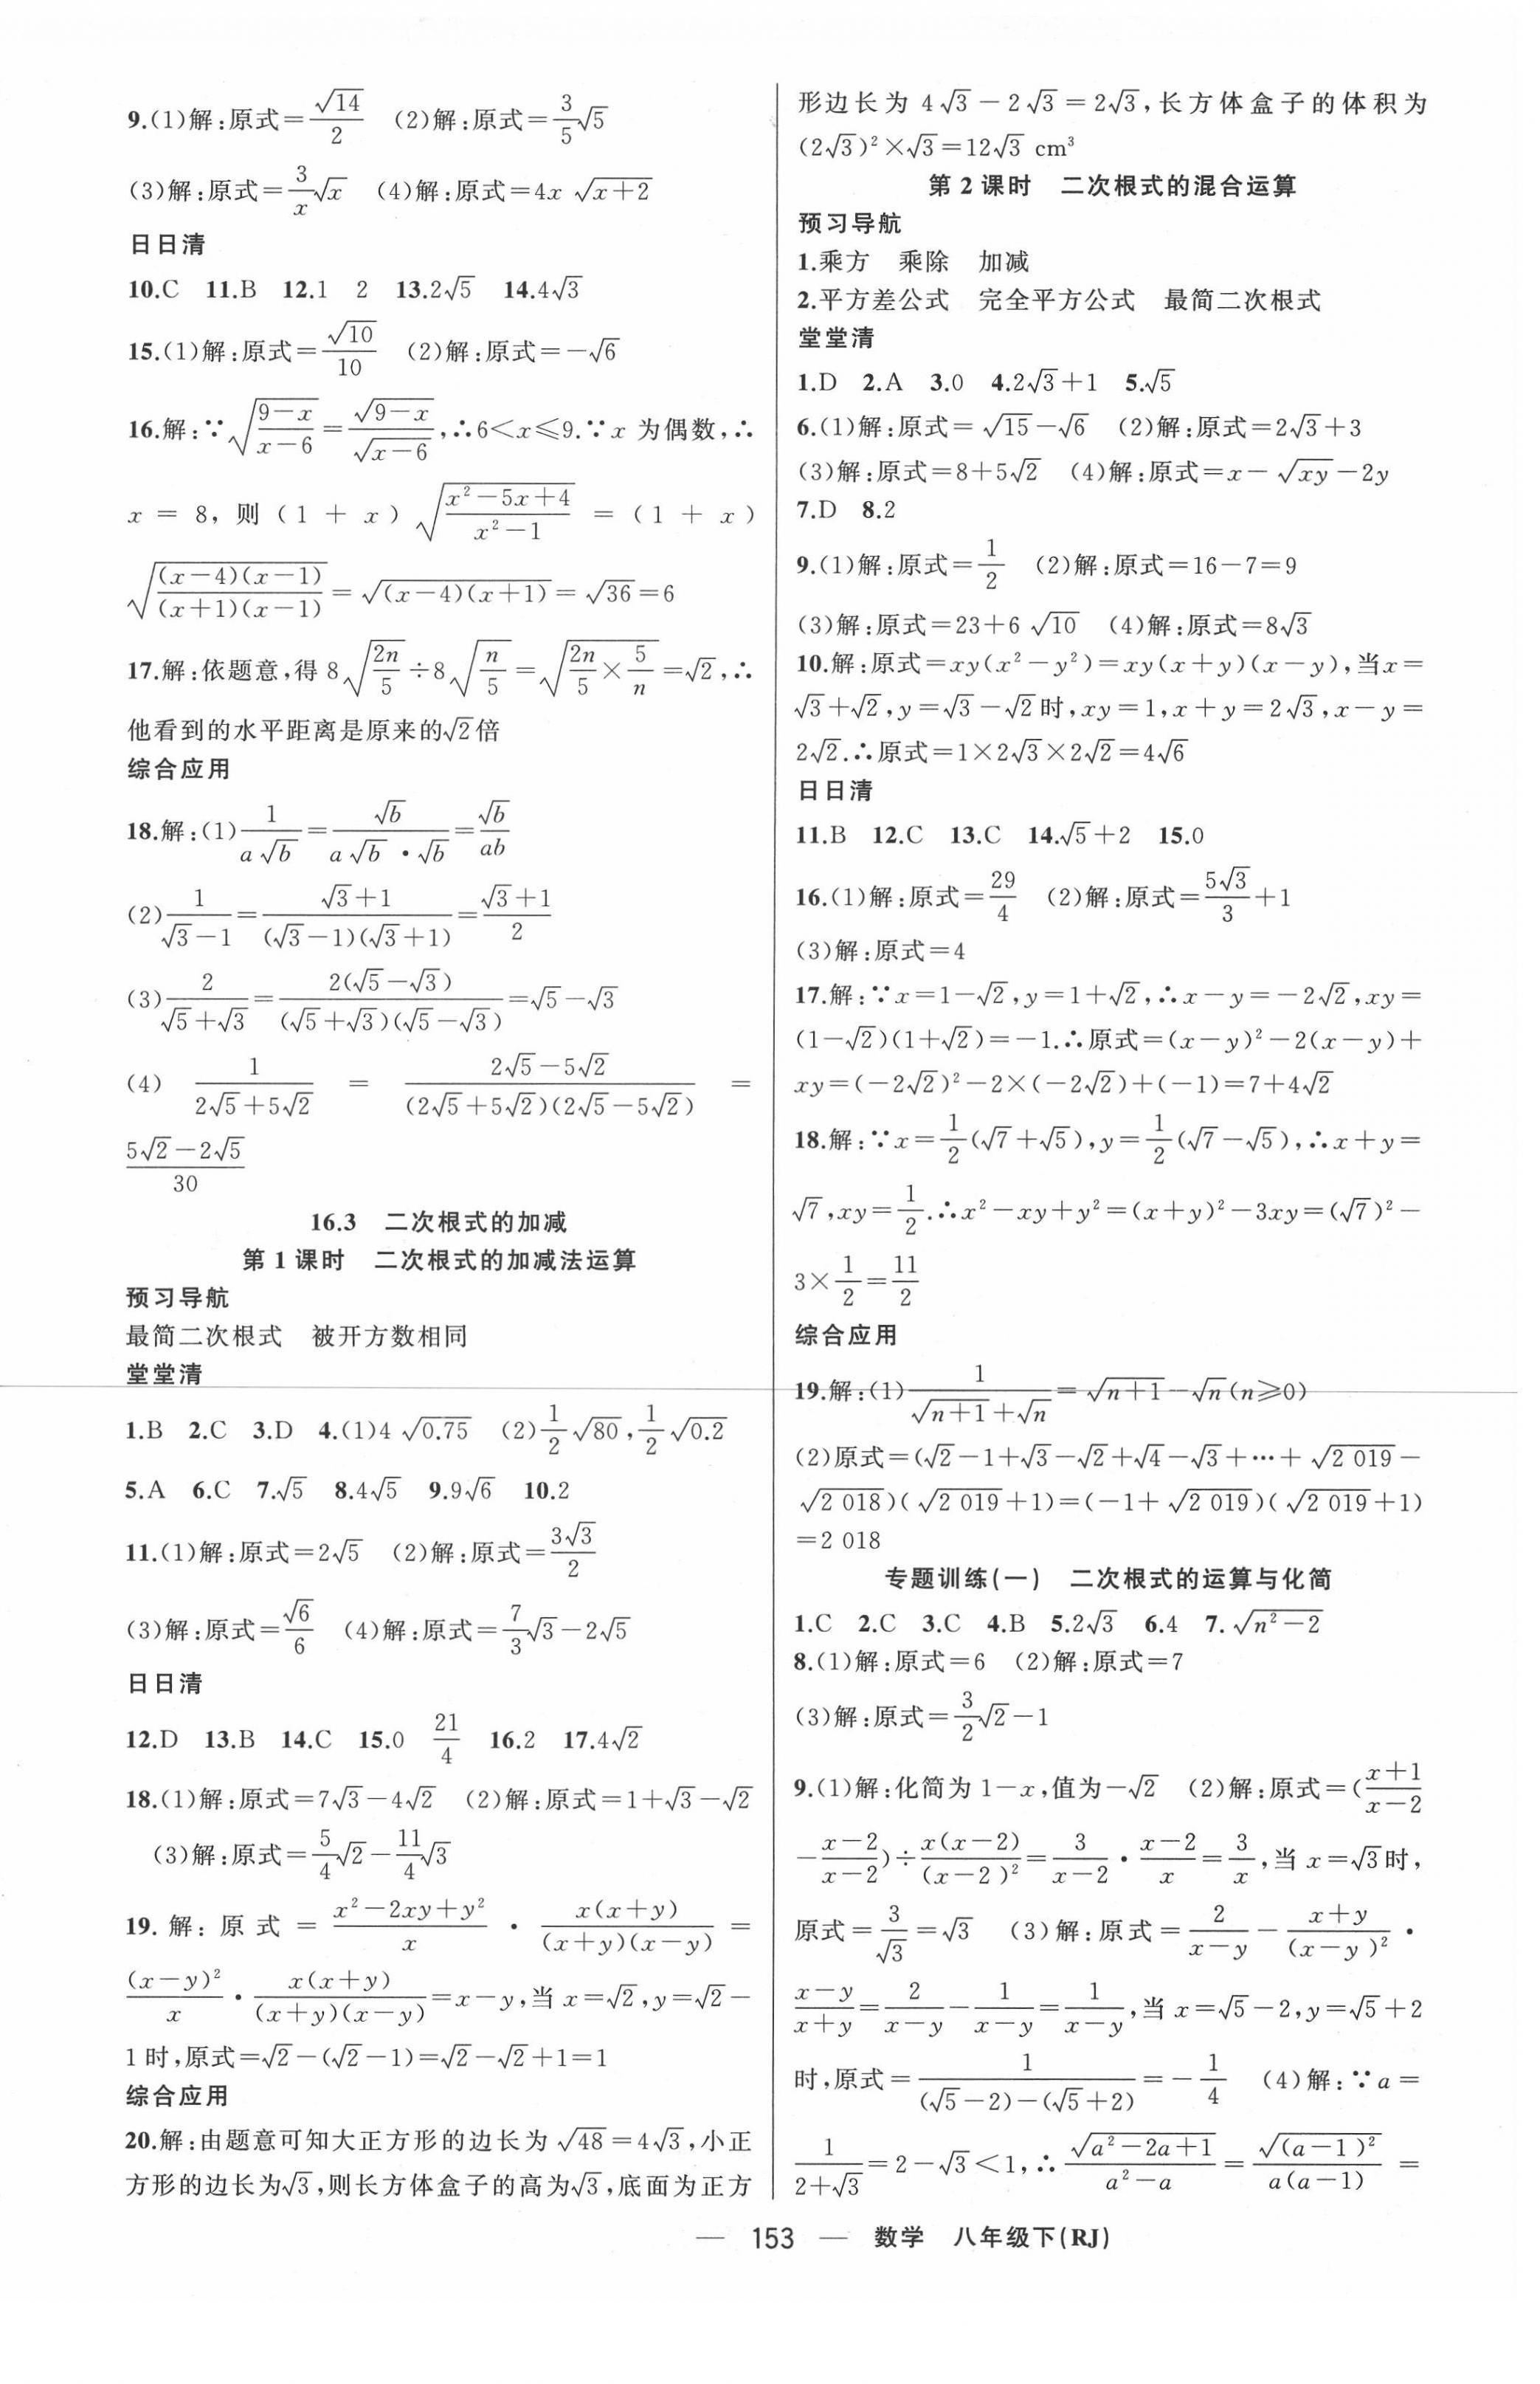 9.(1)解:原式=√14/2 (2)解:原式=3/5√5
(3)解:原式=3/x√x (4)解:原式=4x√(x+2)
日日清
10.C 11.B 12.1 2 13.2√5 14.4√3
15.(1)解:原式=√10/10 (2)解:原式=-√6
16.解:∵√((9-x)/(x-6))=√(9-x)/√(x-6),∴6<x≤9.∵x 为偶数,∴
x=8,则(1+x)√((x²-5x+4)/(x²-1))=(1+x)
√((x-4)(x-1)/((x+1)(x-1)))=√((x-4)(x+1))=√36=6
17.解:依题意,得 8√(2n/5)÷8√(n/5)=√(2n/5×5/n)=√2,∴
他看到的水平距离是原来的√2倍
综合应用
18.解:(1)1/(a√b)=√b/(a√b·√b)=√b/ab
(2)1/(√3-1)=(√3+1)/((√3-1)(√3+1))=(√3+1)/2
(3)2/(√5+√3)=2(√5-√3)/((√5+√3)(√5-√3))=√5-√3
(4)1/(2√5+5√2)=(2√5-5√2)/((2√5+5√2)(2√5-5√2))=
(5√2-2√5)/30
16.3 二次根式的加减
第1课时 二次根式的加减法运算
预习导航
最简二次根式 被开方数相同
堂堂清
1.B 2.C 3.D 4.(1)4√0.75 (2)1/2√80,1/2√0.2
5.A 6.C 7.√5 8.4√5 9.9√6 10.2
11.(1)解:原式=2√5 (2)解:原式=3√3/2
(3)解:原式=√6/6 (4)解:原式=7/3√3-2√5
日日清
12.D 13.B 14.C 15.0 21/4 16.2 17.4√2
18.(1)解:原式=7√3-4√2 (2)解:原式=1+√3-√2
(3)解:原式=5/4√2-11/4√3
19.解:原式=(x²-2xy+y²)/x·x(x+y)/((x+y)(x-y))=
(x-y)²/x·x(x+y)/((x+y)(x-y))=x-y,当 x=√2,y=√2-
1时,原式=√2-(√2-1)=√2-√2+1=1
综合应用
20.解:由题意可知大正方形的边长为√48=4√3,小正
方形的边长为√3,则长方体盒子的高为√3,底面为正方
形边长为 4√3-2√3=2√3,长方体盒子的体积为
(2√3)²×√3=12√3 cm³
第2课时 二次根式的混合运算
预习导航
1.乘方 乘除 加减
2.平方差公式 完全平方公式 最简二次根式
堂堂清
1.D 2.A 3.0 4.2√3+1 5.√5
6.(1)解:原式=√15-√6 (2)解:原式=2√3+3
(3)解:原式=8+5√2 (4)解:原式=x-√(xy)-2y
7.D 8.2
9.(1)解:原式=1/2 (2)解:原式=16-7=9
(3)解:原式=23+6√10 (4)解:原式=8√3
10.解:原式=xy(x²-y²)=xy(x+y)(x-y),当x=
√3+√2,y=√3-√2时,xy=1,x+y=2√3,x-y=
2√2.∴原式=1×2√3×2√2=4√6
日日清
11.B 12.C 13.C 14.√5+2 15.0
16.(1)解:原式=29/4 (2)解:原式=5√3/3+1
(3)解:原式=4
17.解:∵x=1-√2,y=1+√2,∴x-y=-2√2,xy=
(1-√2)(1+√2)=-1.∴原式=(x-y)²-2(x-y)+
xy=(-2√2)²-2×(-2√2)+(-1)=7+4√2
18.解:∵x=1/2(√7+√5),y=1/2(√7-√5),∴x+y=
√7,xy=1/2.∴x²-xy+y²=(x+y)²-3xy=(√7)²-
3×1/2=11/2
综合应用
19.解:(1)1/(√(n+1)+√n)=√(n+1)-√n(n≥0)
(2)原式=(√2-1+√3-√2+√4-√3+…+√2 019-
√2 018)(√2 019+1)=(-1+√2 019)(√2 019+1)
=2 018
专题训练(一) 二次根式的运算与化简
1.C 2.C 3.C 4.B 5.2√3 6.4 7.√(n²-2)
8.(1)解:原式=6 (2)解:原式=7
(3)解:原式=3/2√2-1
9.(1)解:化简为 1-x,值为-√2 (2)解:原式=((x+1)/(x-2)
-(x-2)/(x-2))÷x(x-2)/(x-2)²=3/(x-2)·(x-2)/x=3/x,当 x=√3时,
原式=3/√3=√3 (3)解:原式=2/(x-y)-(x+y)/(x-y)²·
(x-y)/(x+y)=2/(x-y)-1/(x-y)=1/(x-y),当 x=√5-2,y=√5+2
时,原式=1/((√5-2)-(√5+2))=-1/4 (4)解:∵a=
1/(2+√3)=2-√3<1,∴√(a²-2a+1)/(a²-a)=√((a-1)²)/(a(a-1))=
— 153 — 数学 八年级下(RJ)